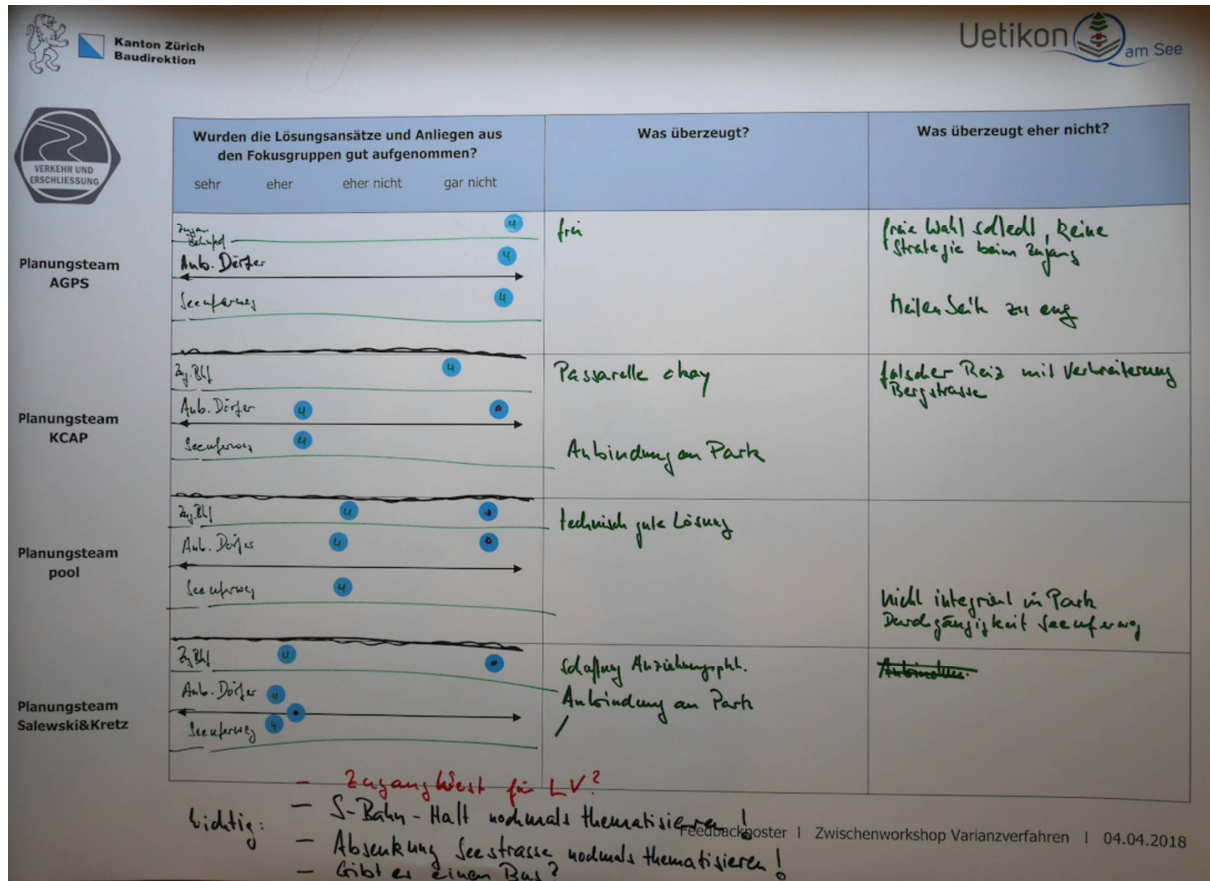 Kanton Zürich
Baudirektion
Uetikon
am See
VERKEHR UND
ERSCHLIESSUNG
Wurden die Lösungsansätze und Anliegen aus
den Fokusgruppen gut aufgenommen?
sehr eher eher nicht gar nicht
Was überzeugt?
Was überzeugt eher nicht?
Planungsteam
AGPS
Bahnhof
4
Anb. Dörfer
4
Seeuferweg
4
frei
freie Wahl schlecht, keine
Strategie beim Zugang
Meilen Seite zu eng
Planungsteam
KCAP
Zug. Bhf
4
Anb. Dörfer
4
Seeuferweg
4
Passarelle okay
Anbindung an Park
falscher Reiz mit Verbreiterung
Bergstrasse
Planungsteam
pool
Zug. Bhf
4
Anb. Dörfer
4
Seeuferweg
4
technisch gute Lösung
nicht integriert in Park
Durchgängigkeit Seeuferweg
Planungsteam
Salewski&Kretz
Zg Bhf
4
Anb. Dörfer
4
Seeuferweg
4
Schaffung Anziehungspkt.
Anbindung an Park
- Zugang West für LV?
Wichtig:
- S-Bahn-Halt nochmals thematisieren!
- Absenkung Seestrasse nochmals thematisieren!
- Gibt es einen Bus?
Feedbackposter | Zwischenworkshop Varianzverfahren | 04.04.2018